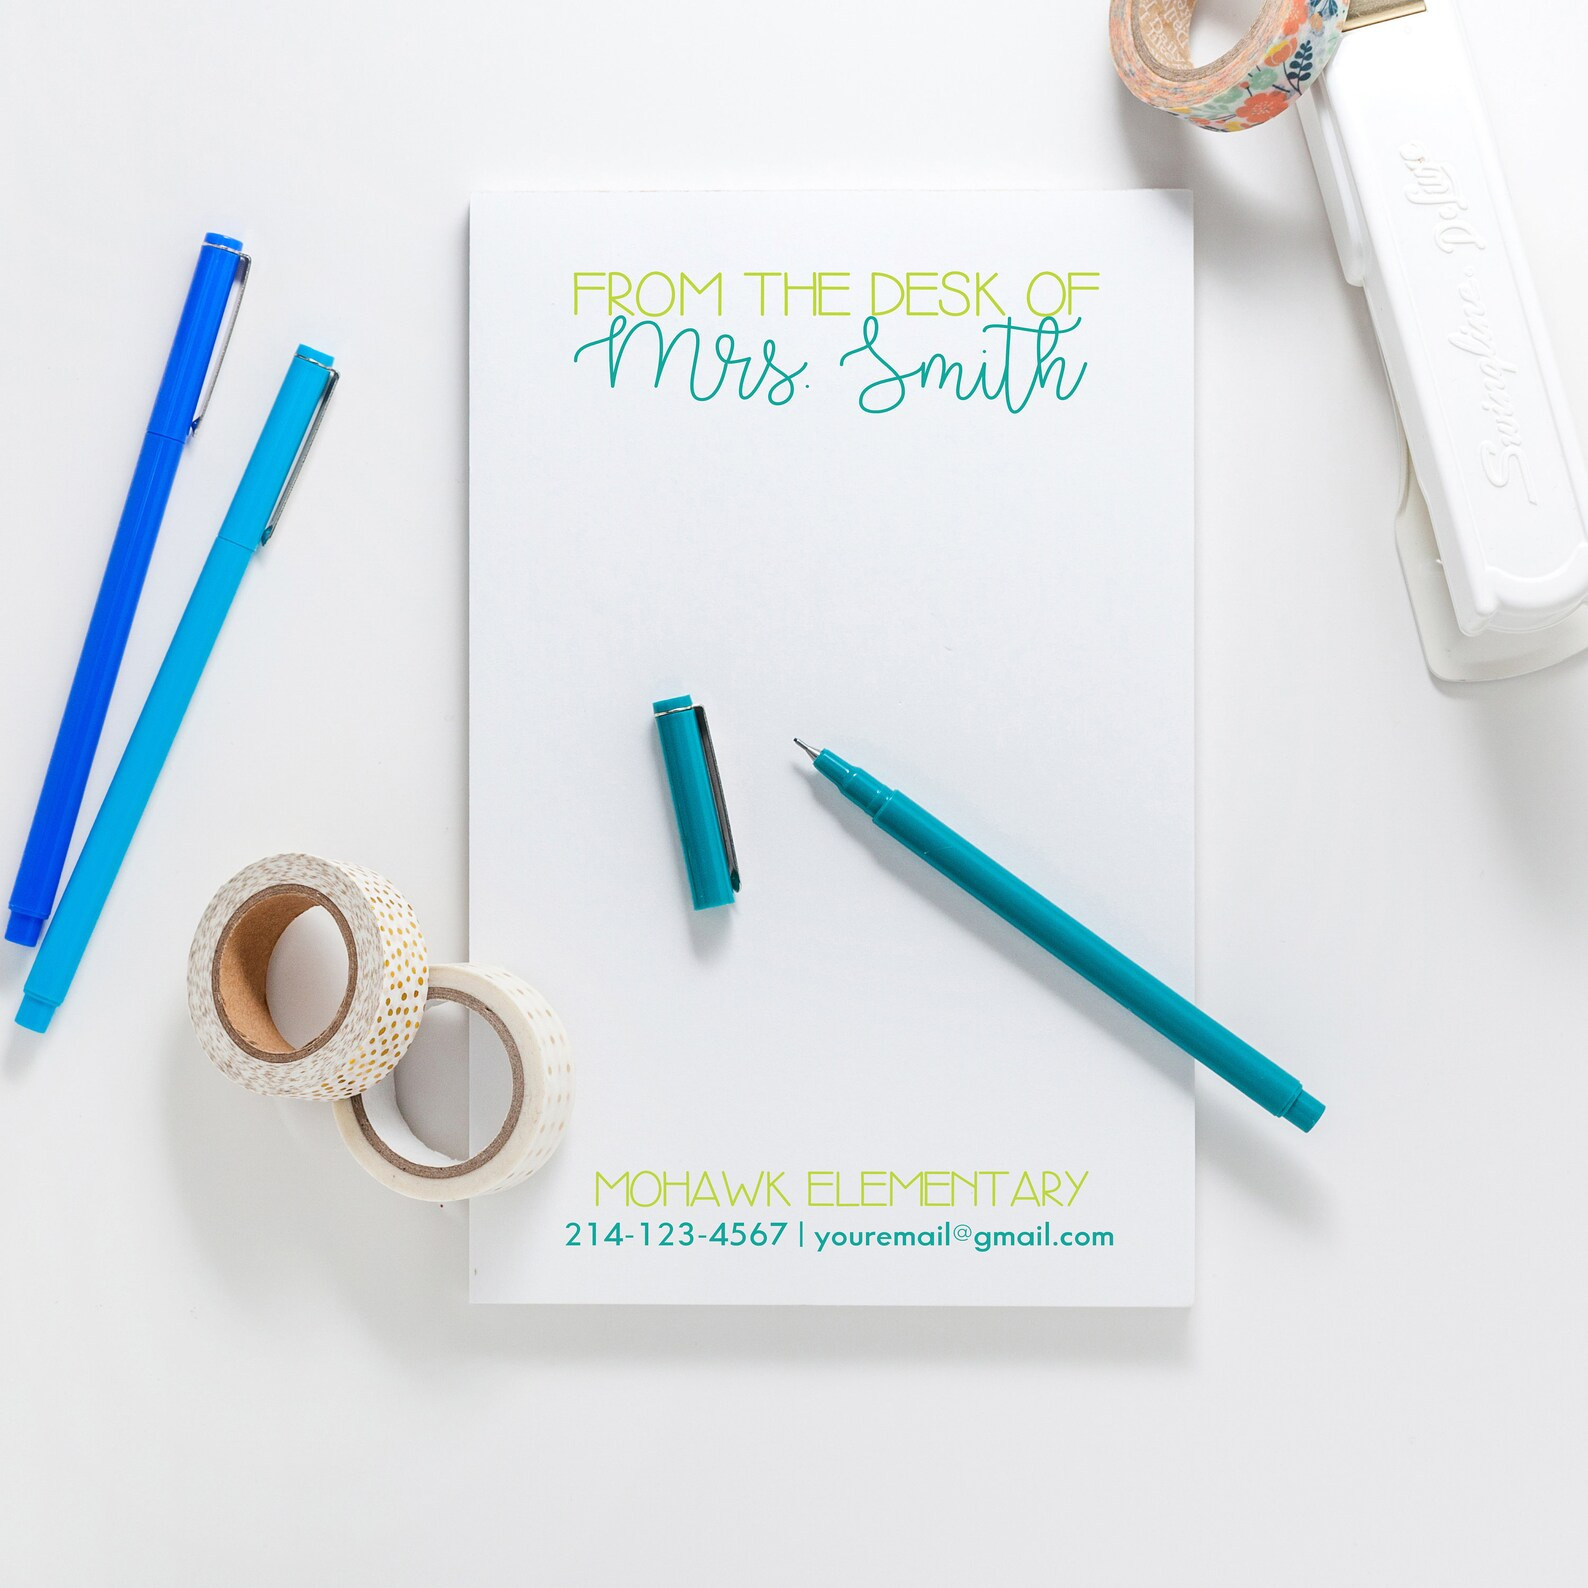 FROM THE DESK OF
Mrs. Smith
MOHAWK ELEMENTARY
214-123-4567 | youremail@gmail.com
Swingline